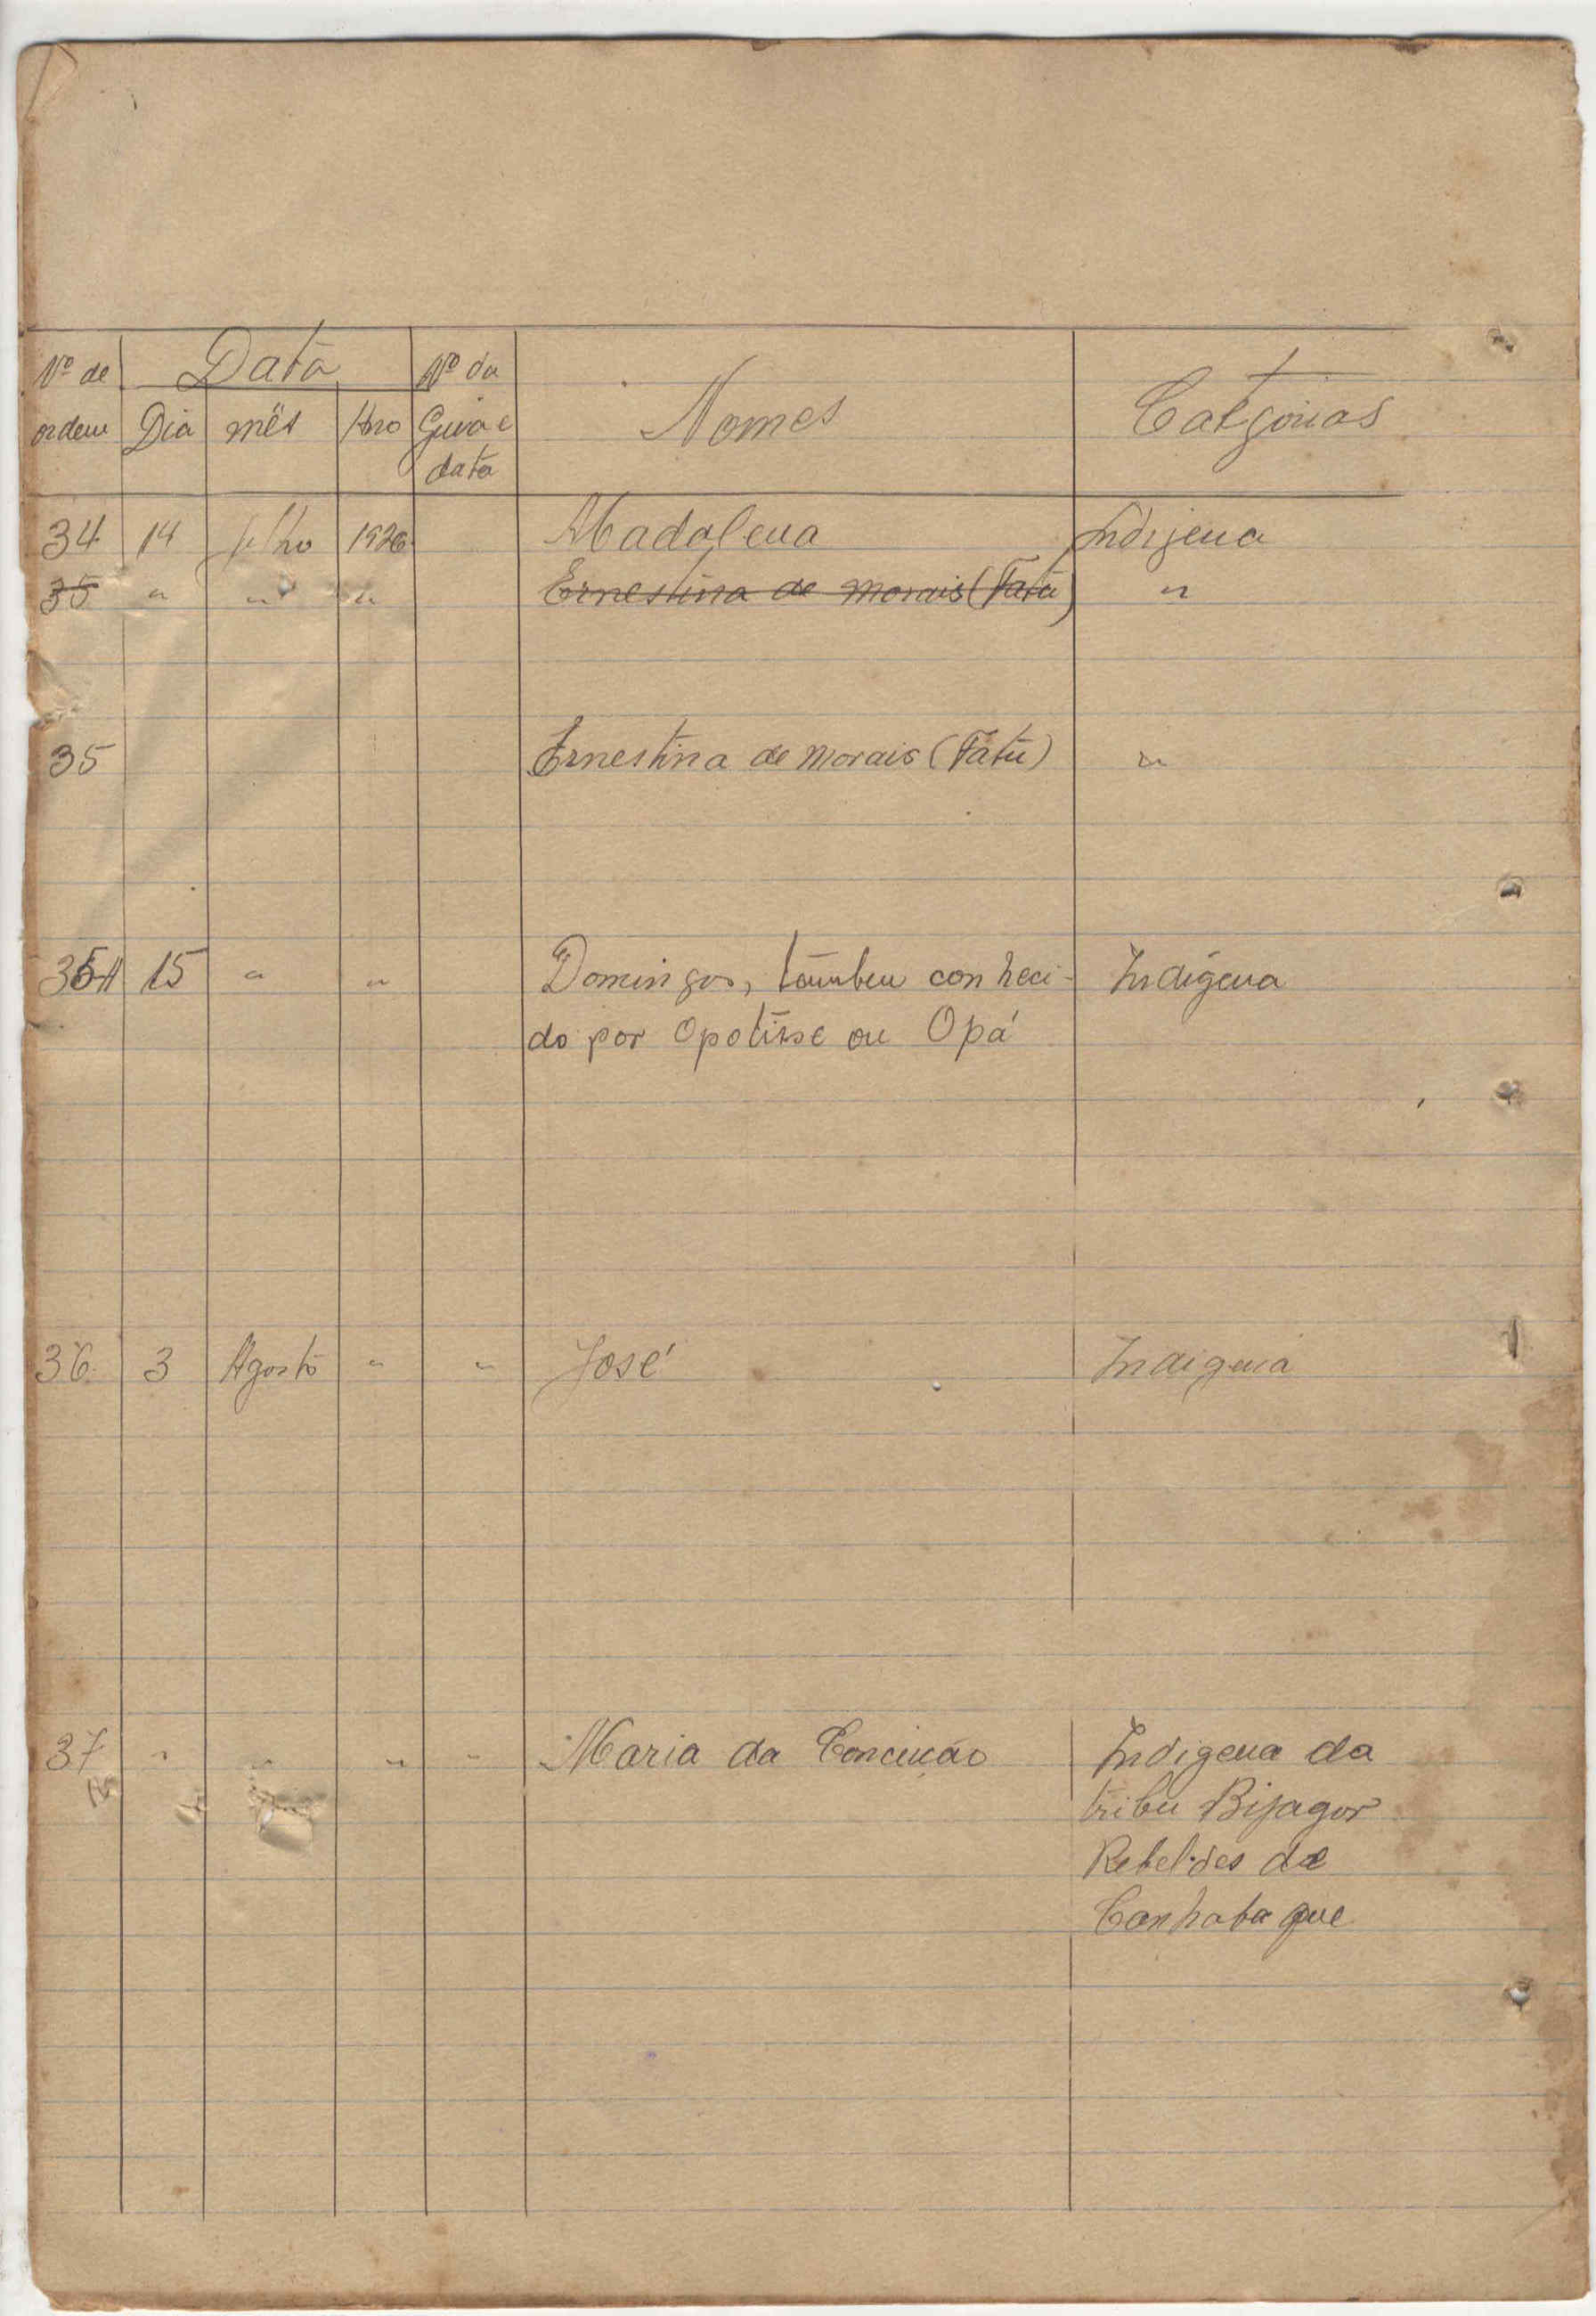 Nº de Data Nº da Nomes Categorias
ordem Dia mês Ano Guia e
data
34 14 Julho 1926 Madalena Indijena
35 " " " Ernestina de Morais (Fatú) "
35 Ernestina de Morais (Fatú) "
35A 15 " " Domingos, também conheci- Indígena
do por Opotisse ou Opá
36 3 Agosto " " José Indigena
37 " " " " Maria da Conceição Indigena da
tribu Bijagos
Rebeldes de
Canhabaque